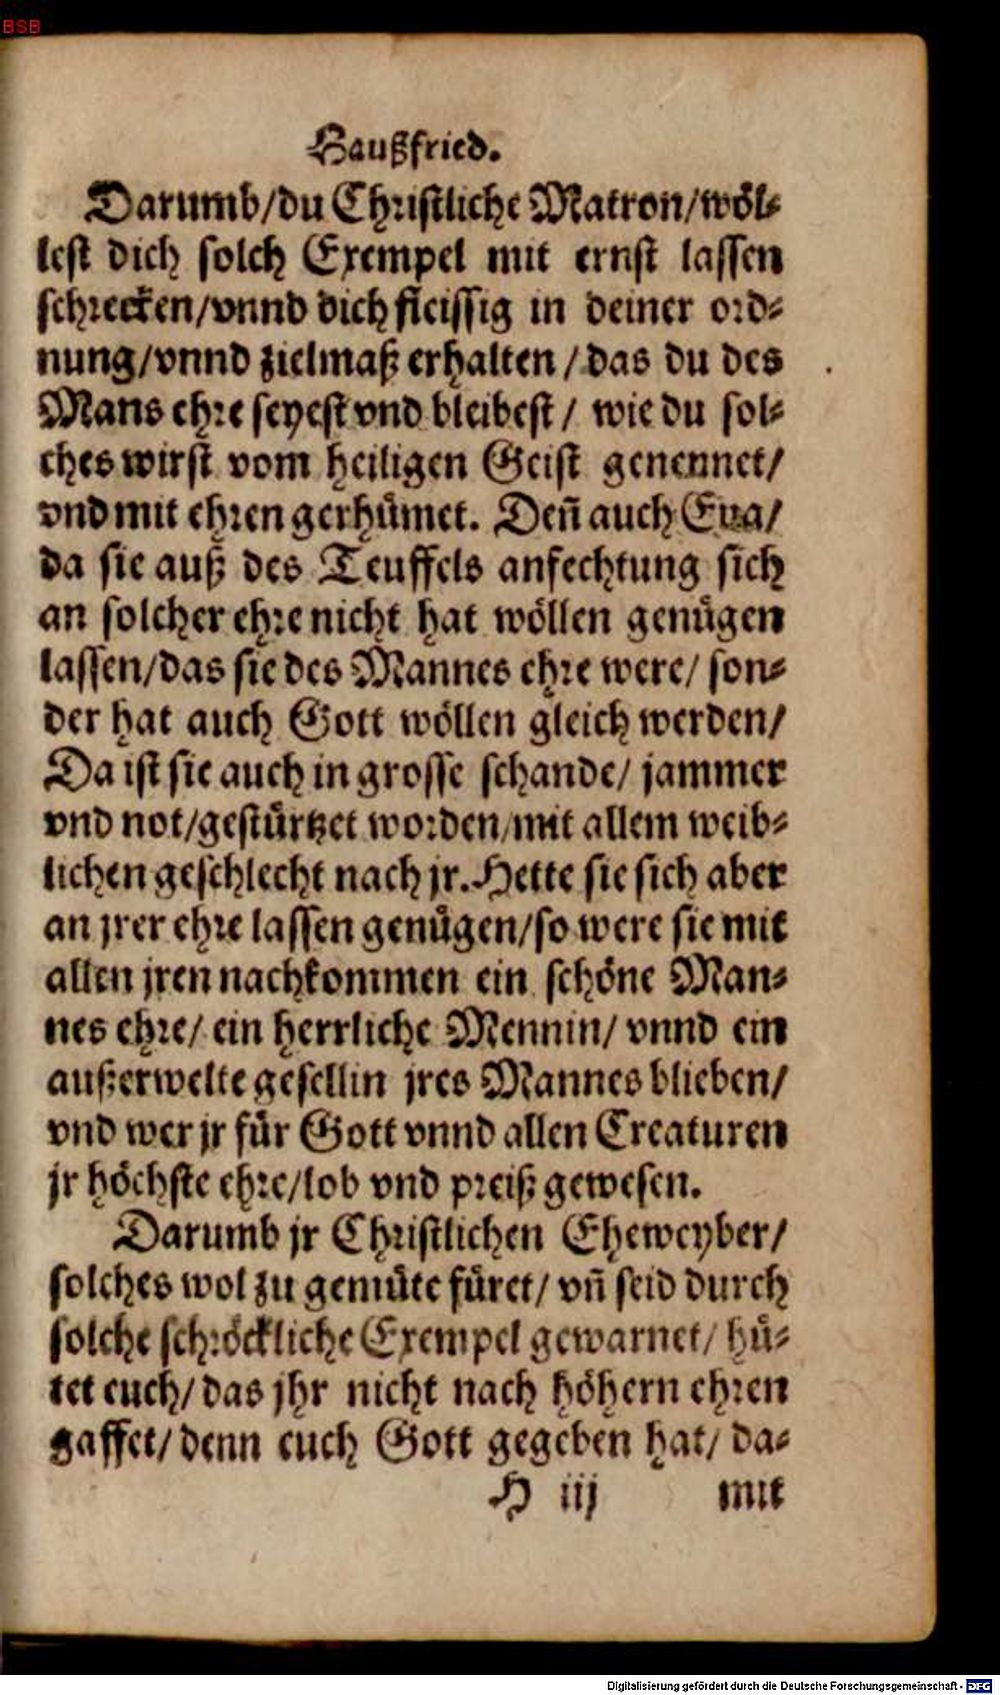 BSB
Haußfried.
Darumb/du Christliche Matron/wöl-
lest dich solch Exempel mit ernst lassen
schrecken/vnnd dich fleissig in deiner ord-
nung/vnnd zielmaß erhalten/das du des
Mans ehre seyest vnd bleibest/ wie du sol-
ches wirst vom heiligen Geist genennet/
vnd mit ehren gerhümet. Deñ auch Eua/
da sie auß des Teuffels anfechtung sich
an solcher ehre nicht hat wöllen genügen
lassen/das sie des Mannes ehre were/ son-
der hat auch Gott wöllen gleich werden/
Da ist sie auch in grosse schande/ jammer
vnd not/gestürtzet worden/mit allem weib-
lichen geschlecht nach jr. Hette sie sich aber
an jrer ehre lassen genügen/so were sie mit
allen jren nachkommen ein schöne Man-
nes ehre/ ein herrliche Mennin/ vnnd ein
außerwelte gesellin jres Mannes blieben/
vnd wer jr für Gott vnnd allen Creaturen
jr höchste ehre/lob vnd preiß gewesen.
Darumb jr Christlichen Eheweyber/
solches wol zu gemüte füret/ vñ seid durch
solche schröckliche Exempel gewarnet/ hü-
tet euch/ das jhr nicht nach höhern ehren
gaffet/ denn euch Gott gegeben hat/ da-
H iij mit
Digitalisierung gefördert durch die Deutsche Forschungsgemeinschaft - DFG